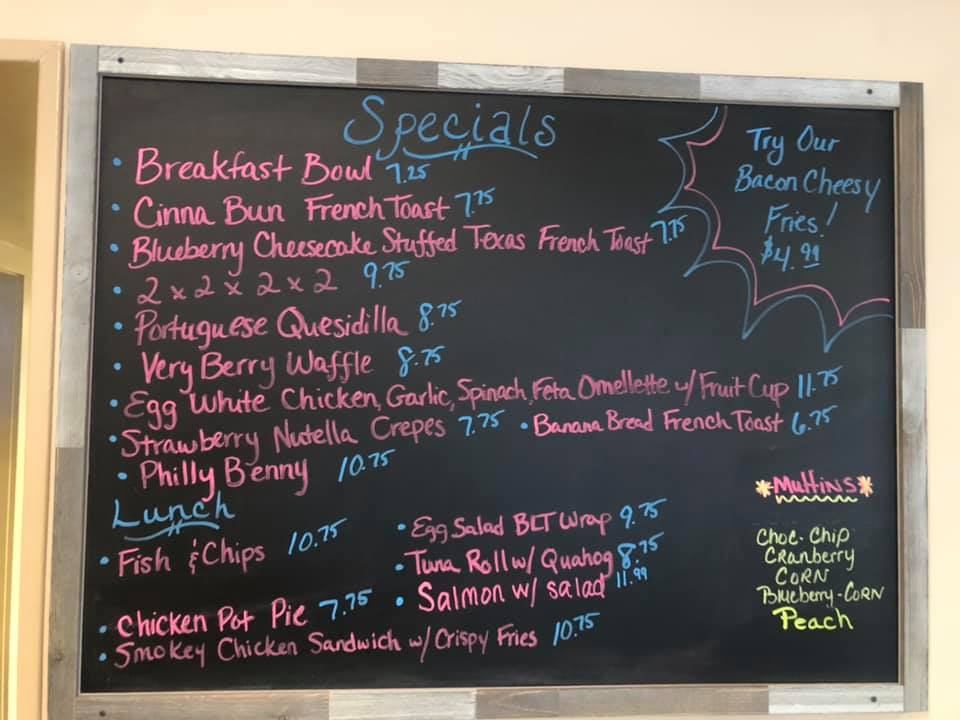 Specials
• Breakfast Bowl 7.25
• Cinna Bun French Toast 7.75
• Blueberry Cheesecake Stuffed Texas French Toast 7.75
• 2 x 2 x 2 x 2 9.75
• Portuguese Quesidilla 8.75
• Very Berry Waffle 8.75
• Egg White Chicken, Garlic, Spinach, Feta Omellette w/ Fruit Cup 11.75
• Strawberry Nutella Crepes 7.75 • Banana Bread French Toast 6.75
• Philly Benny 10.75
Try Our
Bacon Cheesy
Fries!
$4.99
Lunch
• Fish & Chips 10.75
• Egg Salad BLT Wrap 9.75
• Tuna Roll w/ Quahog 8.75
• Salmon w/ salad 11.99
• Chicken Pot Pie 7.75
• Smokey Chicken Sandwich w/ Crispy Fries 10.75
*Muffins*
Choc. Chip
Cranberry
Corn
Blueberry-Corn
Peach